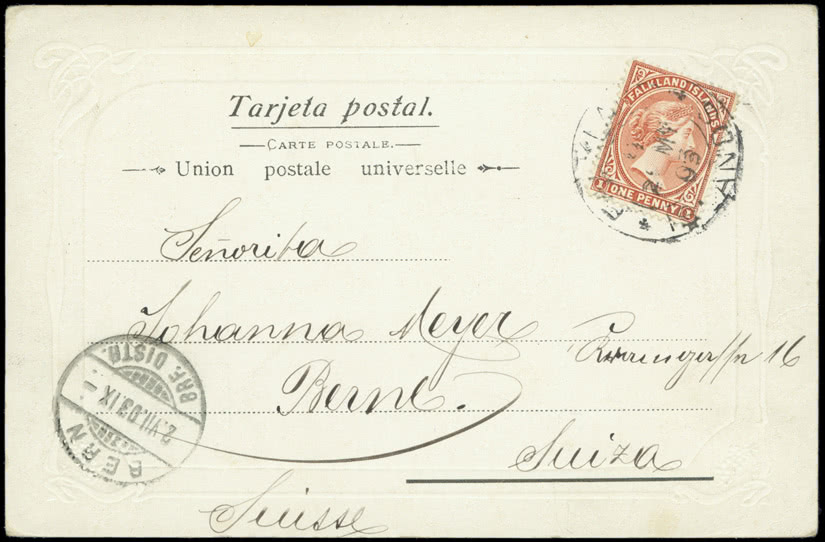 Tarjeta postal.
CARTE POSTALE.
Union postale universelle
FALKLAND ISLANDS
1 ONE PENNY 1
Señorita
Johanna Meyer
Kramgasse 16
Berne.
Suiza
Suisse
BRF. DISTR.
2.VII.03.IX
BERN